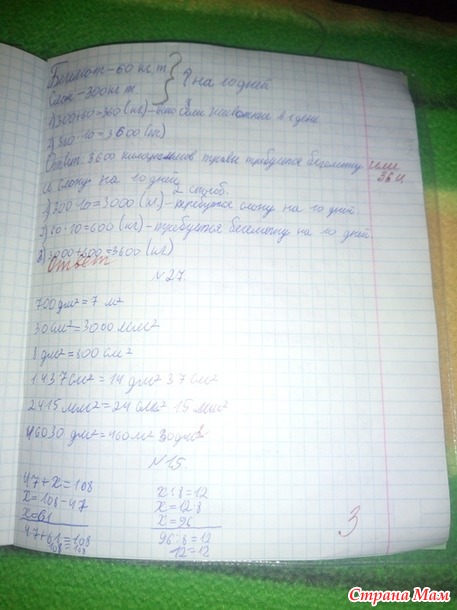 Бегемот – 60 кг т.
Слон – 300 кг т.
} ? на 10 дней
1) 300+60=360 (кг) – оба животные в 1 день
2) 360·10=3600 (кг)
Ответ: 3600 килограммов травы требуется бегемоту
и слону на 10 дней
или
36 ц
2 способ.
1) 300·10=3000 (кг) – требуется слону на 10 дней.
2) 60·10=600 (кг) – требуется бегемоту на 10 дней.
3) 3000+600=3600 (кг)
Ответ
№27.
700 дм² = 7 м²
30 см² = 3000 мм²
8 дм² = 800 см²
1437 см² = 14 дм² 37 см²
2415 мм² = 24 см² 15 мм²
46030 дм² = 460 м² 30 дм²
№15.
47+x=108
x=108-47
x=61
47+61=108
108=108
x:8=12
x=12·8
x=96
96:8=12
12=12
3
Страна Мам